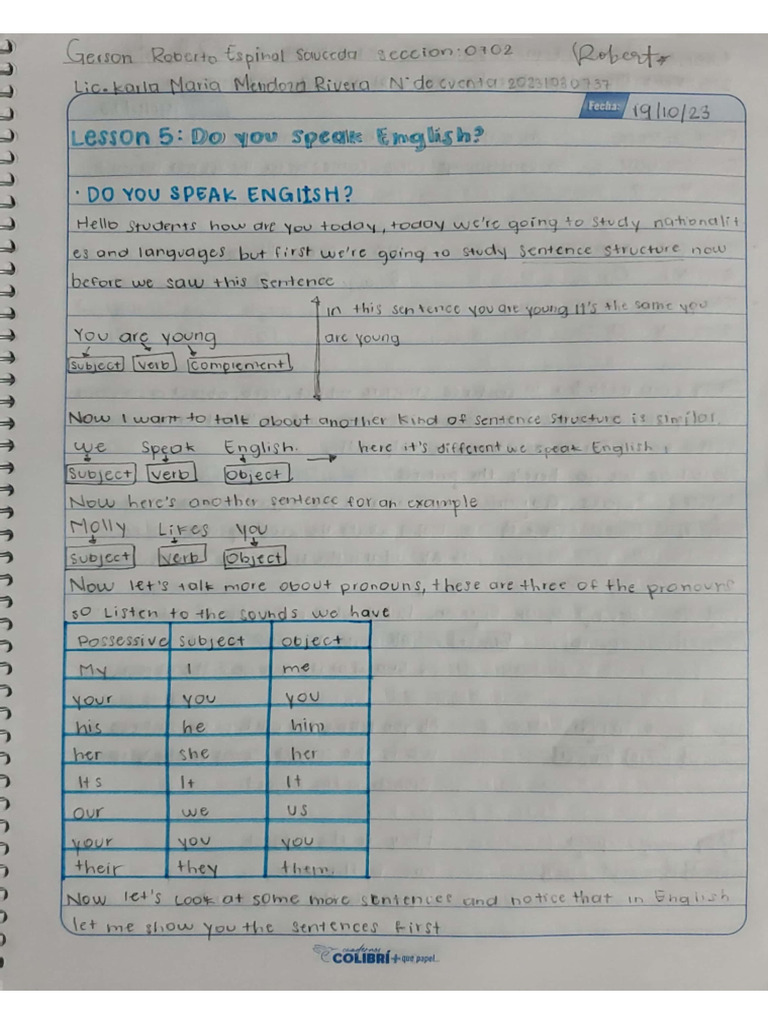 Gerson Roberto Espinal Sauceda seccion: 0702 Roberto
Lic. Karla Maria Mendoza Rivera N° de cuenta 20231030737
Fecha: 19/10/23
Lesson 5: Do you speak English?
· DO YOU SPEAK ENGLISH?
Hello students how are you today, today we're going to study nationalit
es and languages but first we're going to study sentence structure now
before we saw this sentence
in this sentence you are young It's the same you
You are young are young
Subject Verb Complement
Now I want to talk about another kind of sentence structure is similar
we speak English. here it's different we speak English.
Subject Verb Object
Now here's another sentence for an example
Molly Likes you
Subject Verb Object
Now let's talk more about pronouns, these are three of the pronouns
so Listen to the sounds we have
Possessive Subject Object
My I me
your you you
his he him
her she her
Its It It
our we us
your you you
their they them.
Now let's Look at some more sentences and notice that in English
let me show you the sentences first
cuadernos
COLIBRÍ + que papel...